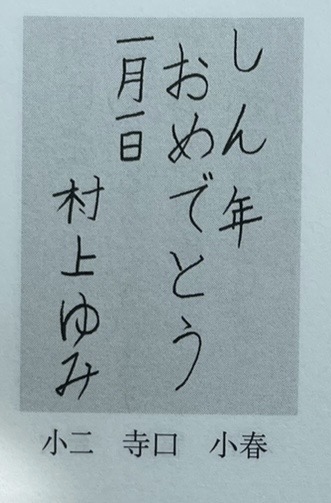 しん年
おめでとう
一月一日
村上ゆみ
小二　寺口　小春